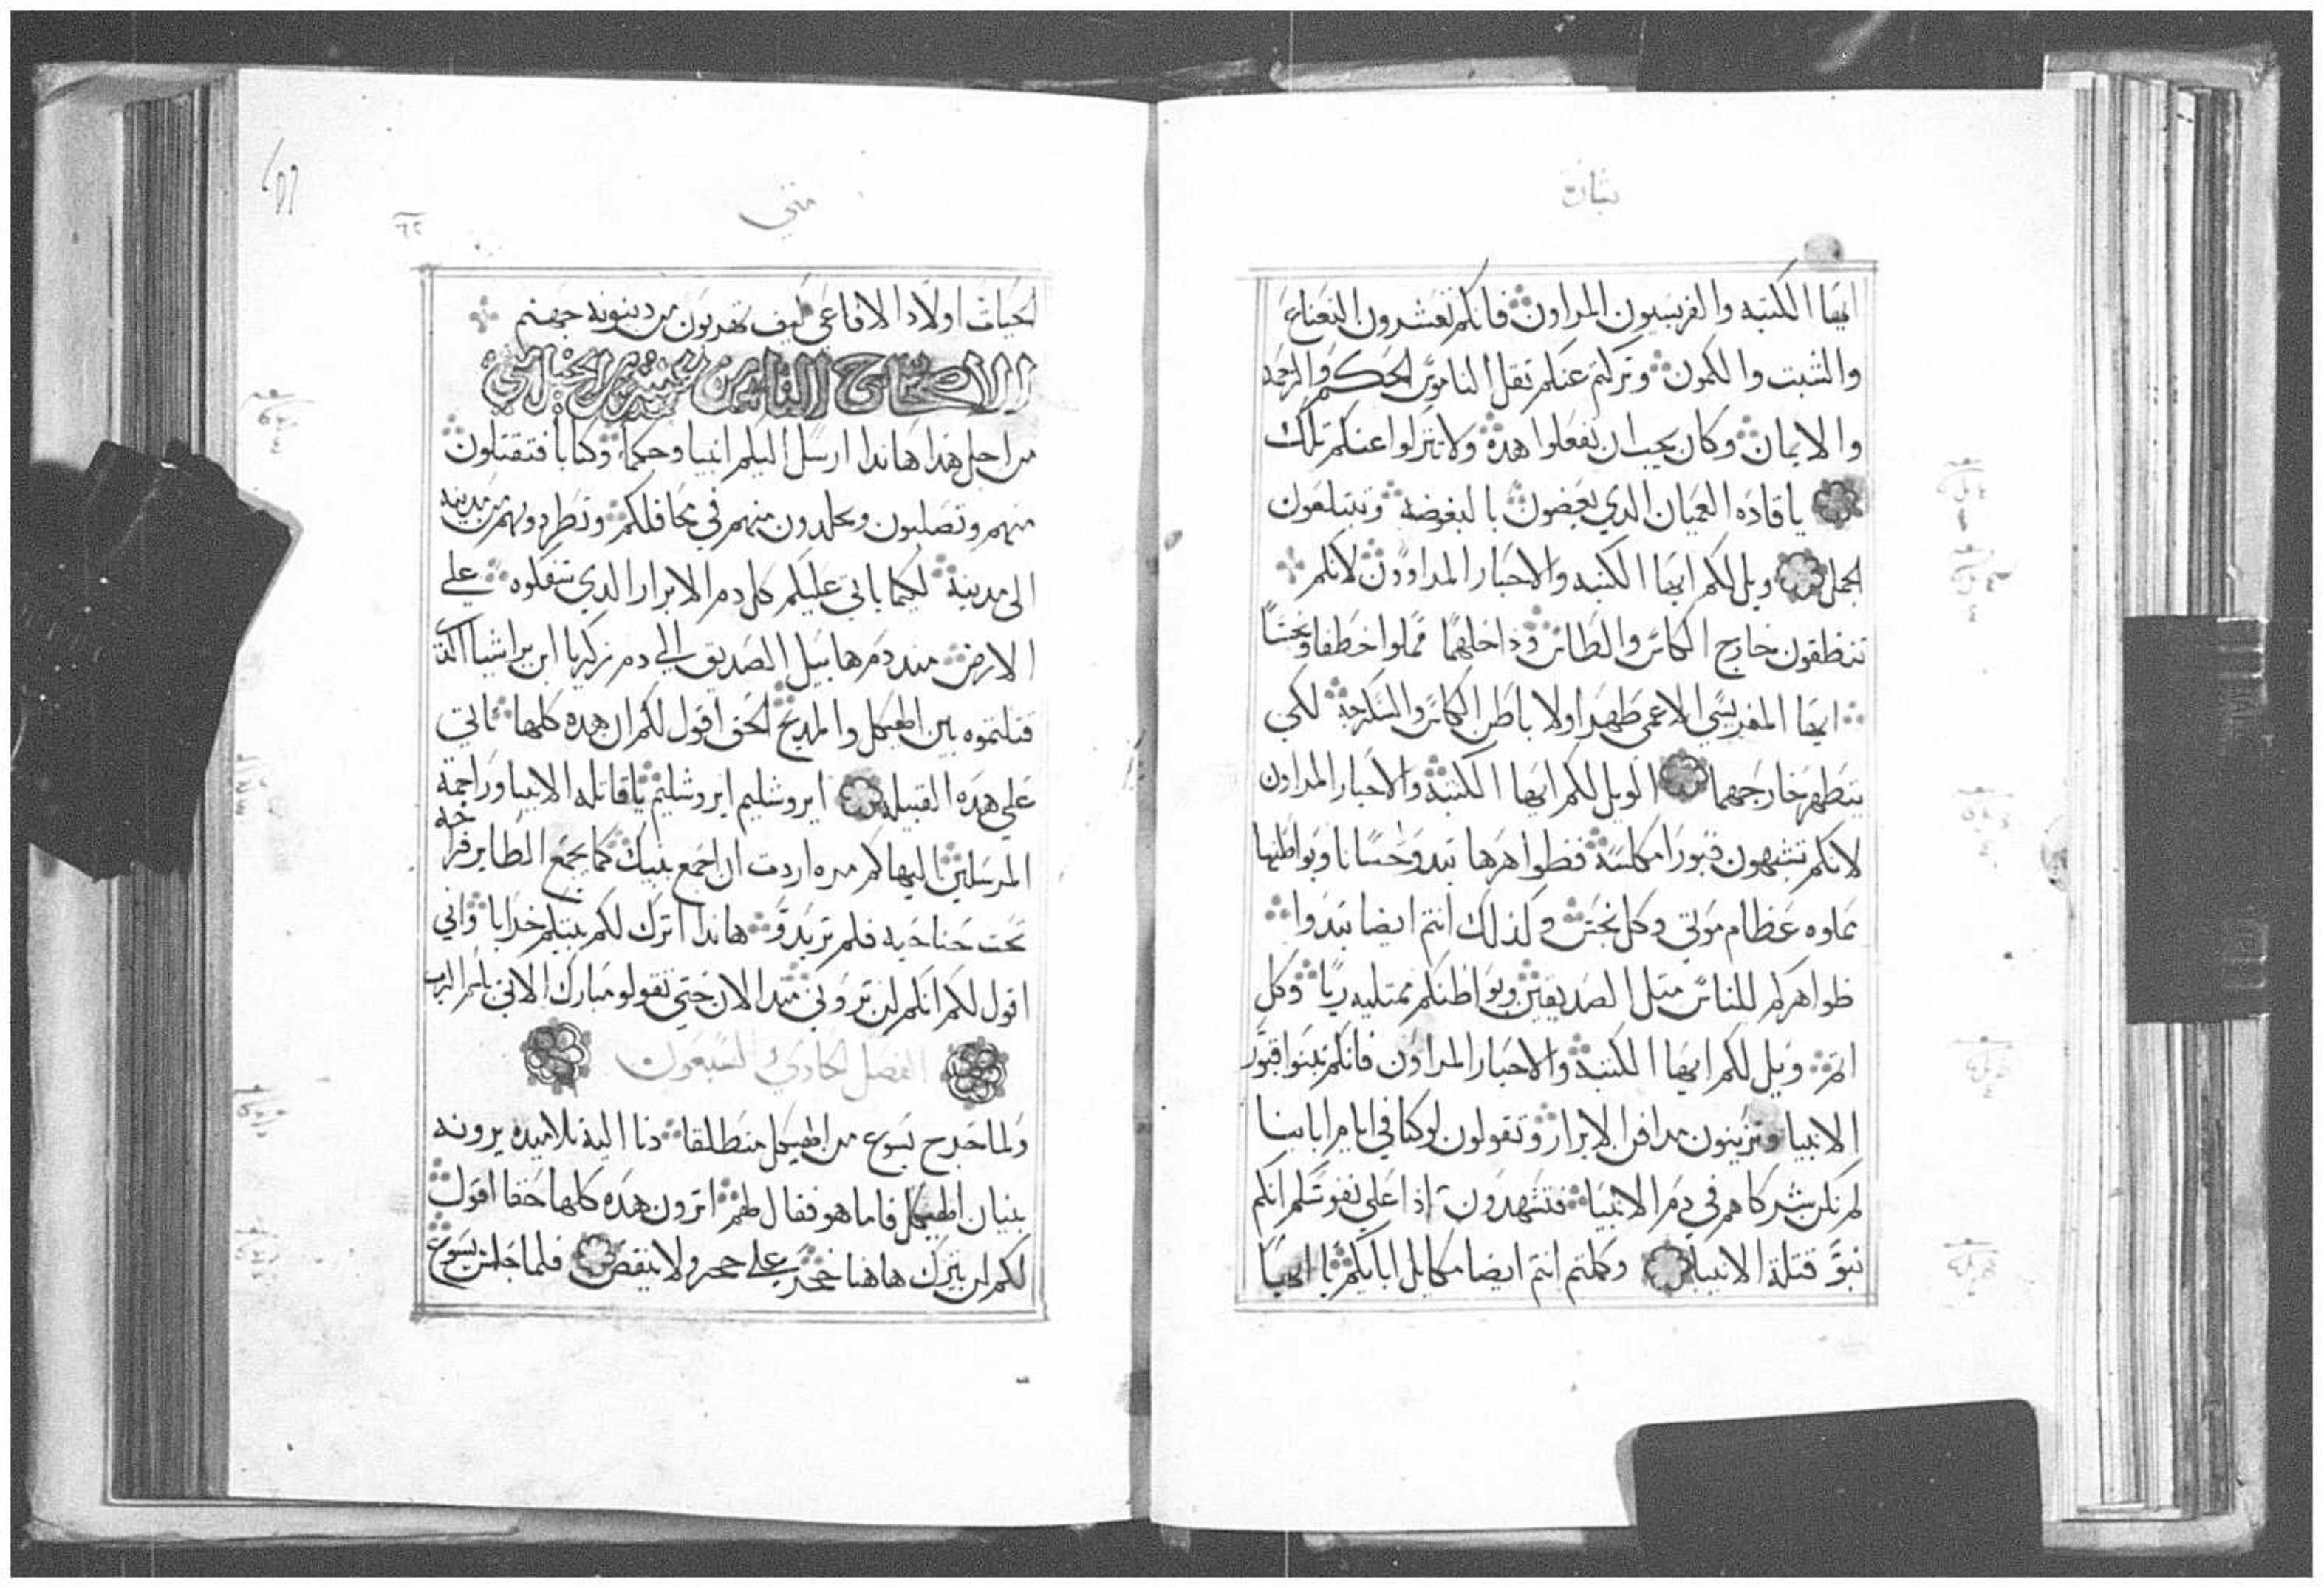 بشارة
ايها الكتبه والفريسيون المراون فانكم تعشرون النعناع
والشبت والكمون وتركتم عنكم ثقل الناموس الحكم والرحمه
والايمان وكان يجب ان تفعلوا هده ولا تتركوا عنكم تلك
يا قادة العميان الدي يعضون بالبعوضه وتبتلعون
الجمل ويل لكم ايها الكتبه والاحبار المراوون لانكم
تنظفون خارج الكاس والطاس وداخلهما مملوا خطفا ونجسًا
ايها الفريسي الاعمى طهر اولا باطن الكاس والسكرجة لكي
يتطهر خارجهما الويل لكم ايها الكتبة والاحبار المراون
لانكم تشبهون قبورا مكلسة فظواهرها تبدو حسانا وبواطنها
مملوه عظام موتي وكل نجس وكذلك انتم ايضا تبدوا
ظواهركم للناس متل الصديقين وبواطنكم ممتليه ريا وكل
اثم ويل لكم ايها الكتبة والاحبار المراون فانكم تبنوا قبور
الانبيا وتزينون مدافن الابرار وتقولون لو كنا في ايام ابابنا
لم نكن شركاهم في دم الانبيا فتشهدون اذا على نفوسكم انكم
بنو قتلة الانبيا وكملتم انتم ايضا مكايل ابايكم يا ايها
متي
٦٢
الحيات اولاد الافاعي كيف تهربون من دينونة جهنم
الاصحاح الثامن عشر من الحبار متي
من اجل هدا هاندا ارسل اليكم انبيا وحكما وكتابا فتقتلون
منهم وتصلبون وتجلدون منهم في محافلكم وتطردونهم من مدينه
الى مدينة لكيما ياتي عليكم كل دم الابرار الدي سفكوه على
الارض مند دم هابيل الصديق الى دم زكريا ابن براشيا الدي
قتلتموه بين الهيكل والمدبح الحق اقول لكم ان هده كلها تاتي
على هده القبيله ايروشليم ايروشليم يا قاتله الانبيا وراجمة
المرسلين اليها كم مره اردت ان اجمع بنيك كما يجمع الطاير فراخه
تحت جناحيه فلم تريدو هاندا اترك لكم بيتكم خرابا واني
اقول لكم انكم لن تروني مند الان حتى تقولو مبارك الاتي باسم الرب
الفصل الحادي السبعون
ولما خرج يسوع من الهيكل منطلقا دنا اليه تلاميده يرونه
بنيان الهيكل فاما هو فقال لهم اترون هده كلها حقا اقول
لكم لن يترك هاهنا حجر على حجر ولا ينقض فلما جلس يسوع